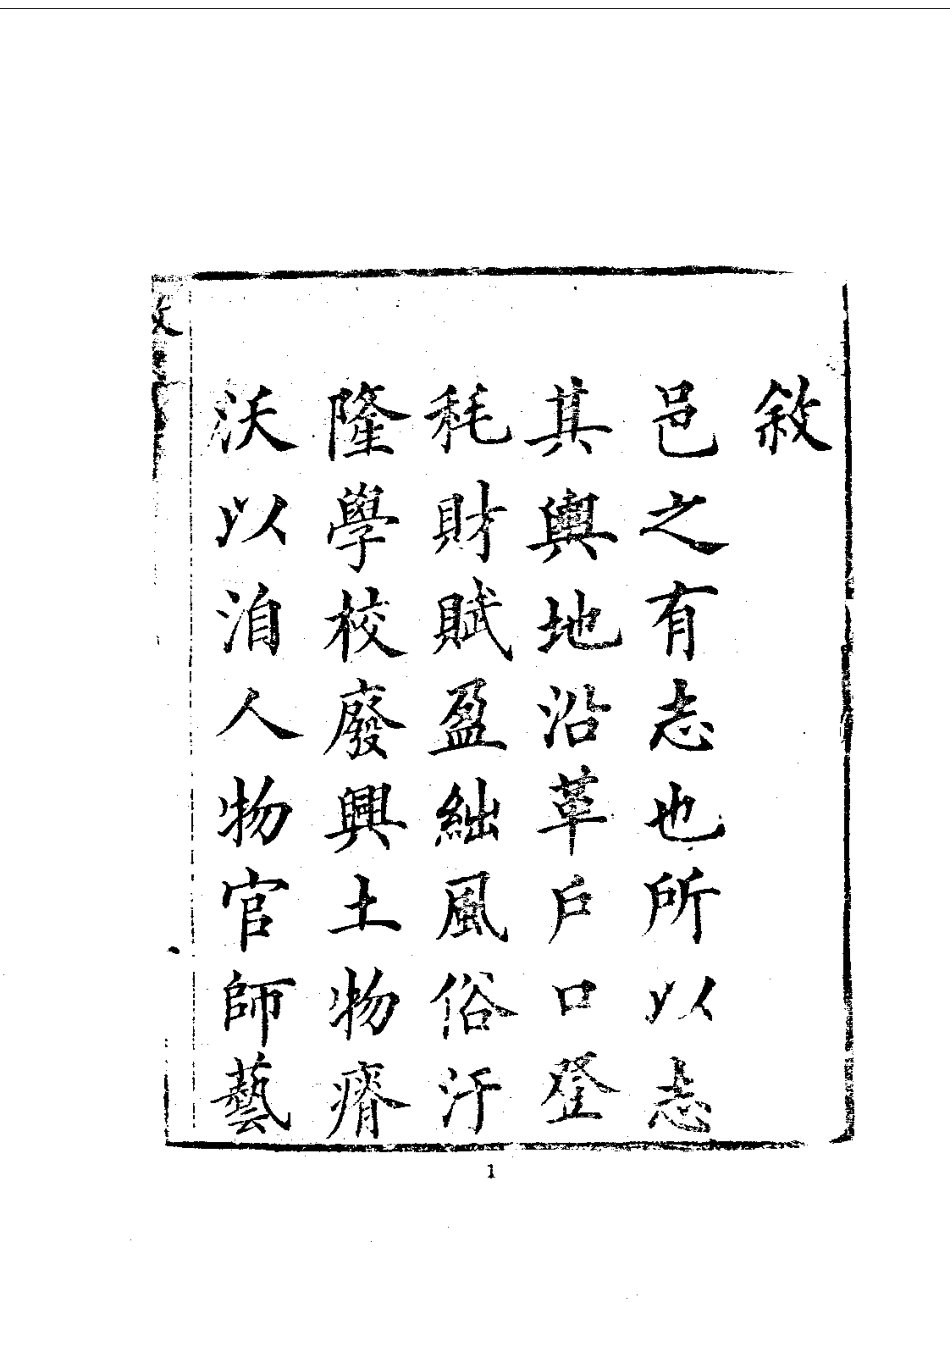 敘
邑之有志也所以志
其輿地沿革戶口登
秏財賦盈絀風俗汙
隆學校廢興土物瘠
沃以洎人物官師藝
1